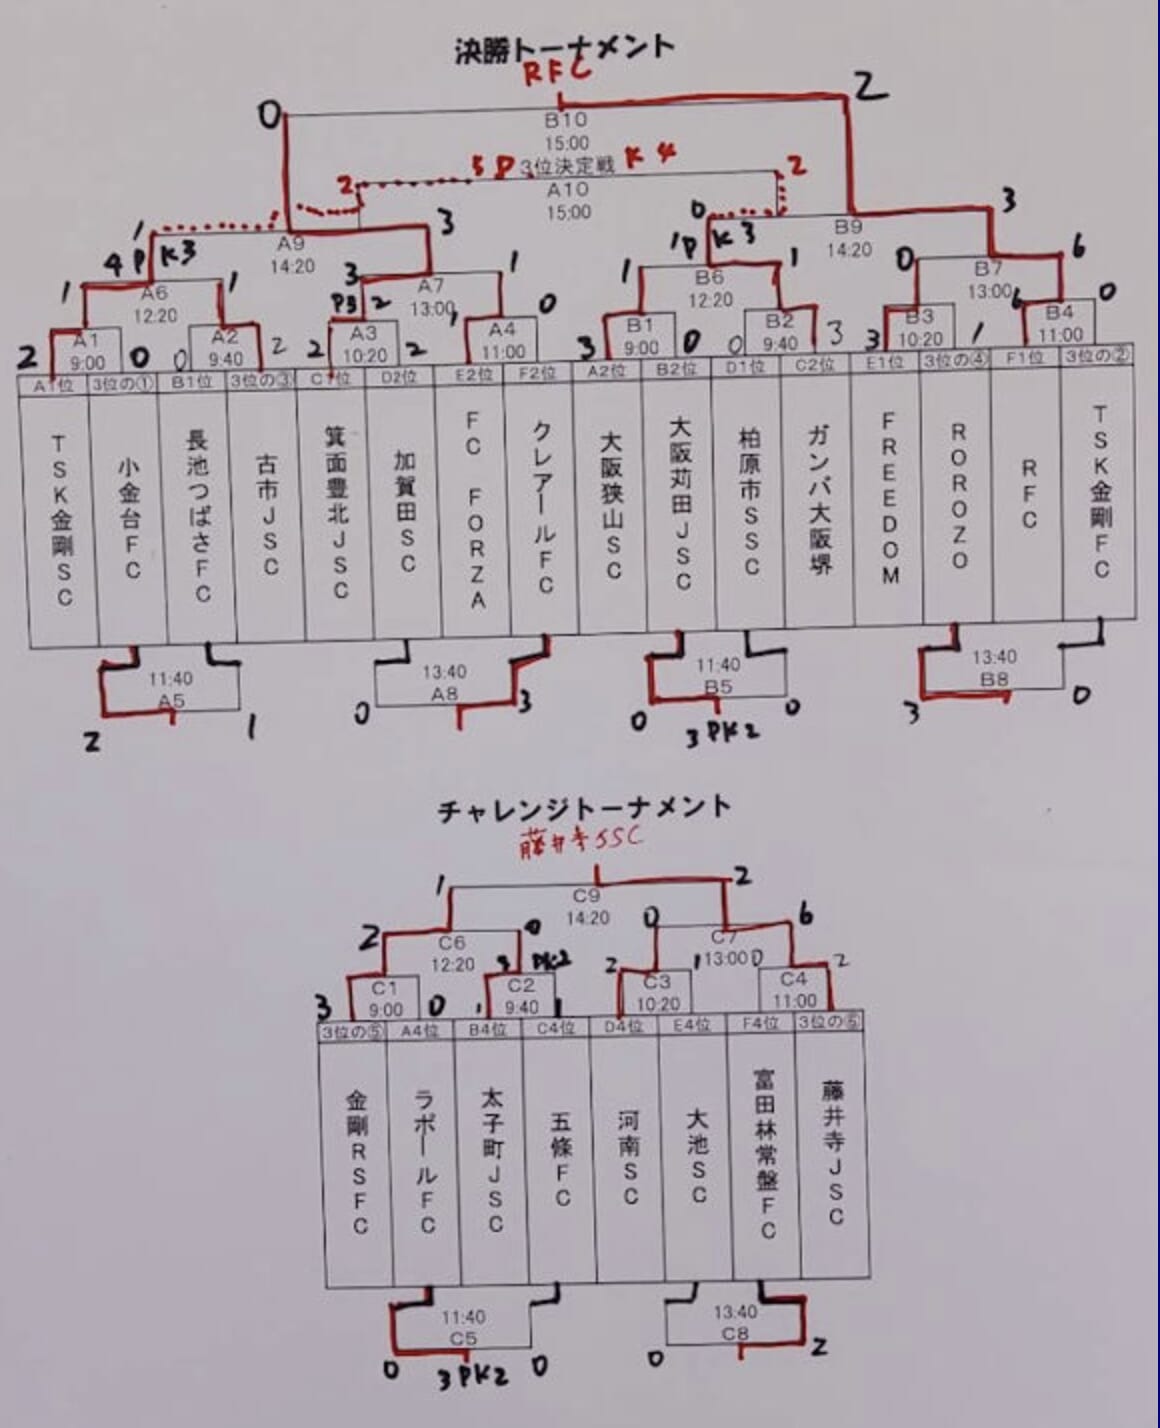 決勝トーナメント
RFC
0 2
B10
15:00
5 P 3位決定戦 K 4
2 2
A10
15:00
1 3 0 3
A9
14:20
B9
14:20
4 P K3 1P K3
1 1 3 1 1 1 0 6
A6
12:20
A7
13:00
B6
12:20
B7
13:00
P3 2
A1
9:00
A2
9:40
A3
10:20
A4
11:00
B1
9:00
B2
9:40
B3
10:20
B4
11:00
2 0 0 2 2 2 1 0 3 0 0 3 3 1 6 0
A1位 3位の① B1位 3位の③ C1位 D2位 E2位 F2位 A2位 B2位 D1位 C2位 E1位 3位の④ F1位 3位の②
TSK金剛SC
小金台FC
長池つばさFC
古市JSC
箕面豊北JSC
加賀田SC
FC FORZA
クレアールFC
大阪狭山SC
大阪苅田JSC
柏原市SSC
ガンバ大阪堺
FREEDOM
ROROZO
RFC
TSK金剛FC
11:40
A5
2 1
13:40
A8
0 3
11:40
B5
0 0
3 PK2
13:40
B8
3 0
チャレンジトーナメント
藤井寺JSC
1 2
C9
14:20
2 0 0 6
C6
12:20
C7
13:00
3 PK2
C1
9:00
C2
9:40
C3
10:20
C4
11:00
3 0 1 1 2 1 0 2
3位の⑤ A4位 B4位 C4位 D4位 E4位 F4位 3位の⑤
金剛RSFC
ラポールFC
太子町JSC
五條FC
河南SC
大池SC
富田林常盤FC
藤井寺JSC
11:40
C5
0 0
3 PK2
13:40
C8
0 2